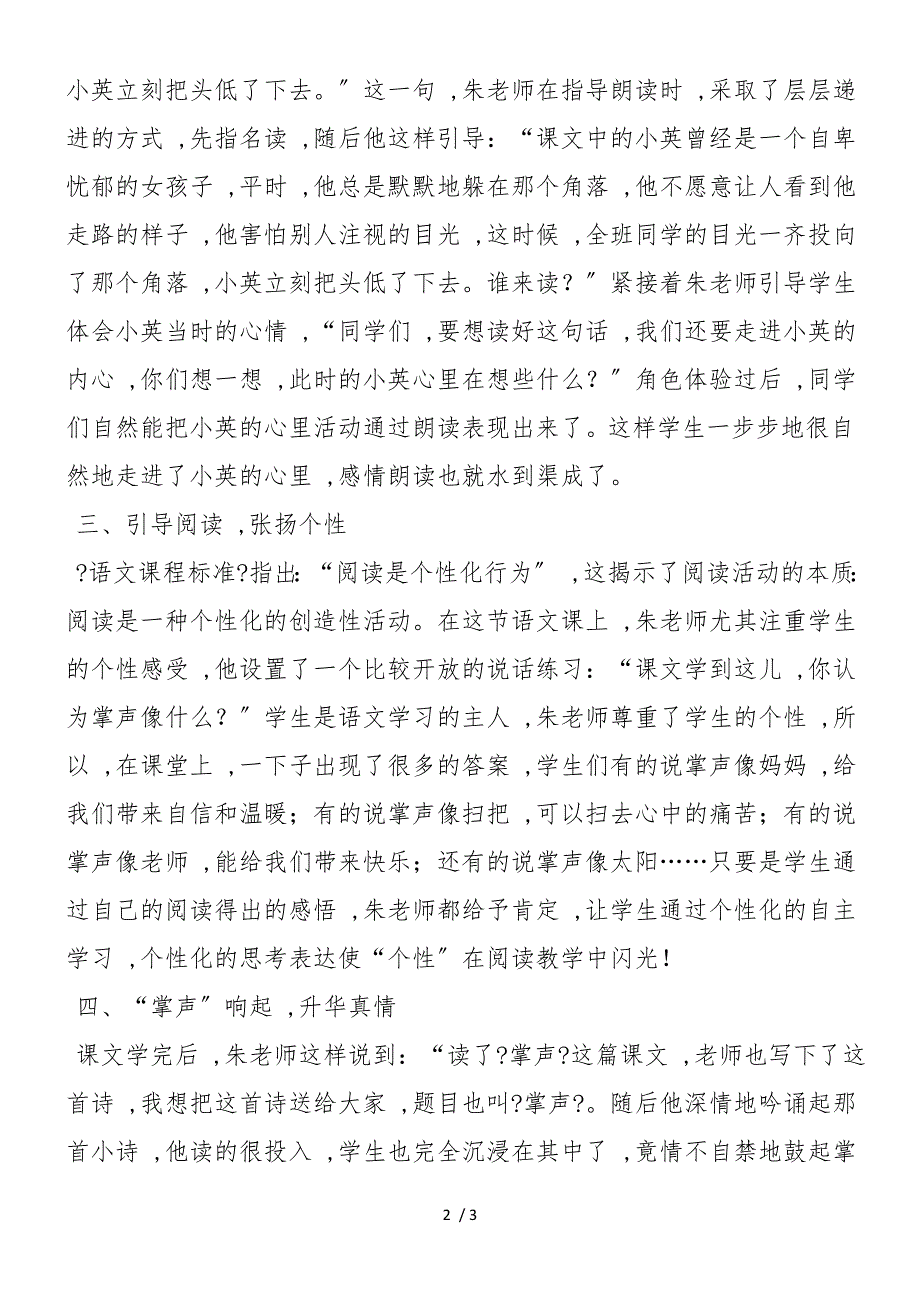 小英立刻把头低了下去。〞这一句 ,朱老师在指导朗读时 ,采取了层层递
进的方式 ,先指名读 ,随后他这样引导：“课文中的小英曾经是一个自卑
忧郁的女孩子 ,平时 ,他总是默默地躲在那个角落 ,他不愿意让人看到他
走路的样子 ,他害怕别人注视的目光 ,这时候 ,全班同学的目光一齐投向
了那个角落 ,小英立刻把头低了下去。谁来读？〞紧接着朱老师引导学生
体会小英当时的心情 ,“同学们 ,要想读好这句话 ,我们还要走进小英的
内心 ,你们想一想 ,此时的小英心里在想些什么？〞角色体验过后 ,同学
们自然能把小英的心里活动通过朗读表现出来了。这样学生一步步地很自
然地走进了小英的心里 ,感情朗读也就水到渠成了。
三、引导阅读 ,张扬个性
?语文课程标准?指出：“阅读是个性化行为〞 ,这揭示了阅读活动的本质：
阅读是一种个性化的创造性活动。在这节语文课上 ,朱老师尤其注重学生
的个性感受 ,他设置了一个比较开放的说话练习：“课文学到这儿 ,你认
为掌声像什么？〞学生是语文学习的主人 ,朱老师尊重了学生的个性 ,所
以 ,在课堂上 ,一下子出现了很多的答案 ,学生们有的说掌声像妈妈 ,给
我们带来自信和温暖；有的说掌声像扫把 ,可以扫去心中的痛苦；有的说
掌声像老师 ,能给我们带来快乐；还有的说掌声像太阳……只要是学生通
过自己的阅读得出的感悟 ,朱老师都给予肯定 ,让学生通过个性化的自主
学习 ,个性化的思考表达使“个性〞在阅读教学中闪光！
四、“掌声〞响起 ,升华真情
课文学完后 ,朱老师这样说到：“读了?掌声?这篇课文 ,老师也写下了这
首诗 ,我想把这首诗送给大家 ,题目也叫?掌声?。随后他深情地吟诵起那
首小诗 ,他读的很投入 ,学生也完全沉浸在其中了 ,竟情不自禁地鼓起掌
2 / 3